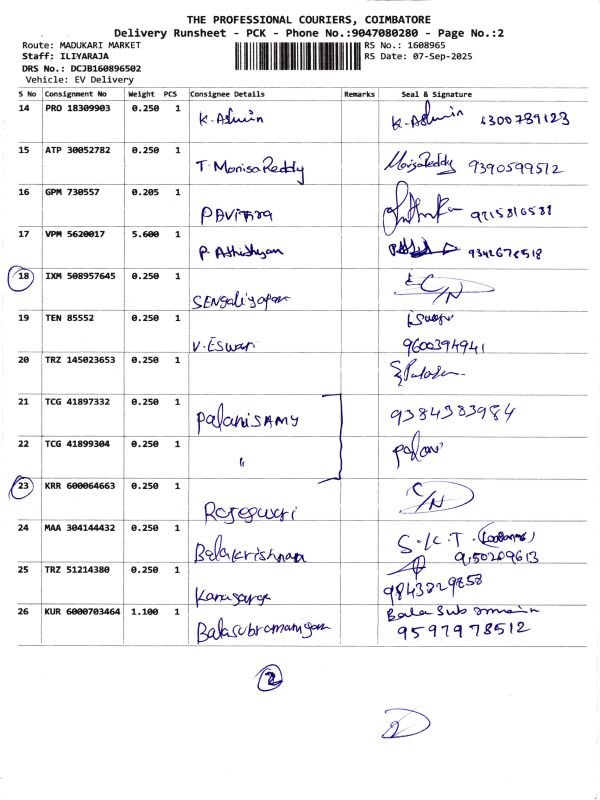 THE PROFESSIONAL COURIERS, COIMBATORE
Delivery Runsheet - PCK - Phone No.:9047080280 - Page No.:2
Route: MADUKARI MARKET
Staff: ILIYARAJA
DRS No.: DCJB160896502
Vehicle: EV Delivery
RS No.: 1608965
RS Date: 07-Sep-2025
S No Consignment No Weight PCS Consignee Details Remarks Seal & Signature
14 PRO 18309903 0.250 1 K. Ashwin K. Ashwin 6300789123
15 ATP 30052782 0.250 1 T. MonisaReddy MonisaReddy 9390599512
16 GPM 730557 0.205 1 PAVITHRA
17 VPM 5620017 5.600 1 P. 9342676518
18 IXM 508957645 0.250 1 C/N
19 TEN 85552 0.250 1 V. Eswari 9600394941
20 TRZ 145023653 0.250 1
21 TCG 41897332 0.250 1 PalaniSAMY 9384383984
22 TCG 41899304 0.250 1 " Palani
23 KRR 600064663 0.250 1 Rajeswari C/N
24 MAA 304144432 0.250 1 Balakrishnan S.K.T.
25 TRZ 51214380 0.250 1 9843229858
26 KUR 6000703464 1.100 1 Balasubramaniyam 9597978512
2